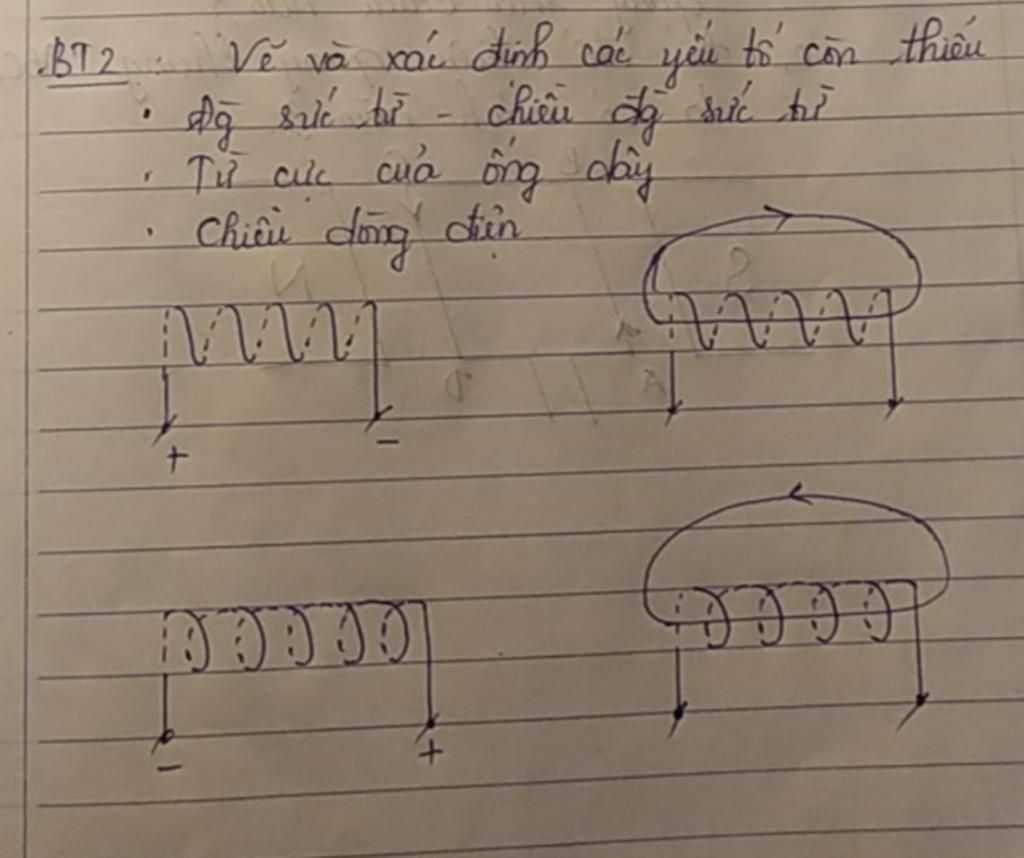 BT2 : Vẽ và xác định các yếu tố còn thiếu
· Đg sức từ - chiều đg sức từ
· Từ cực của ống dây
· Chiều dòng điện
+ -
- +